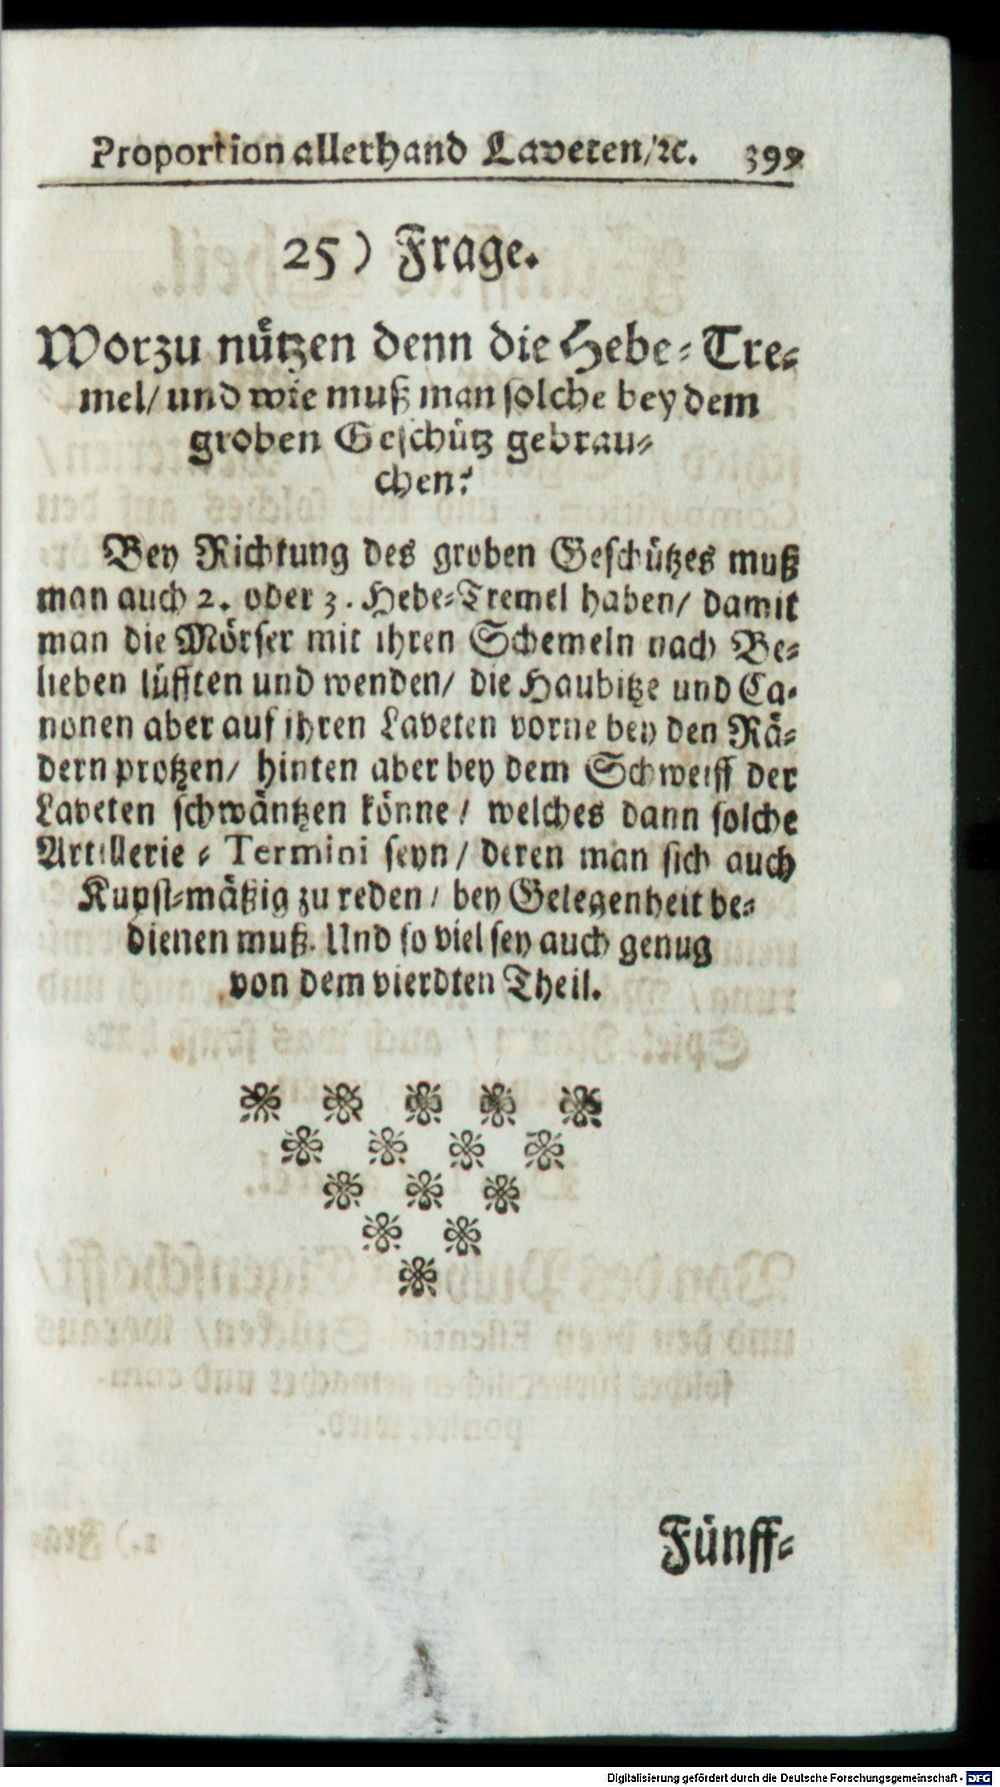 Proportion allerhand Laveten/ꝛc. 399
25) Frage.
Worzu nützen denn die Hebe⸗Tre⸗
mel/ und wie muß man solche bey dem
groben Geschütz gebrau⸗
chen?
Bey Richtung des groben Geschützes muß
man auch 2. oder 3. Hebe⸗Tremel haben/ damit
man die Mörser mit ihren Schemeln nach Be⸗
lieben lüfften und wenden/ die Haubitze und Ca⸗
nonen aber auf ihren Laveten vorne bey den Rä⸗
dern protzen/ hinten aber bey dem Schweiff der
Laveten schwäntzen könne/ welches dann solche
Artillerie⸗Termini seyn/ deren man sich auch
Kunst⸗mäßig zu reden/ bey Gelegenheit be⸗
dienen muß. Und so viel sey auch genug
von dem vierdten Theil.
Fünff⸗
Digitalisierung gefördert durch die Deutsche Forschungsgemeinschaft - DFG